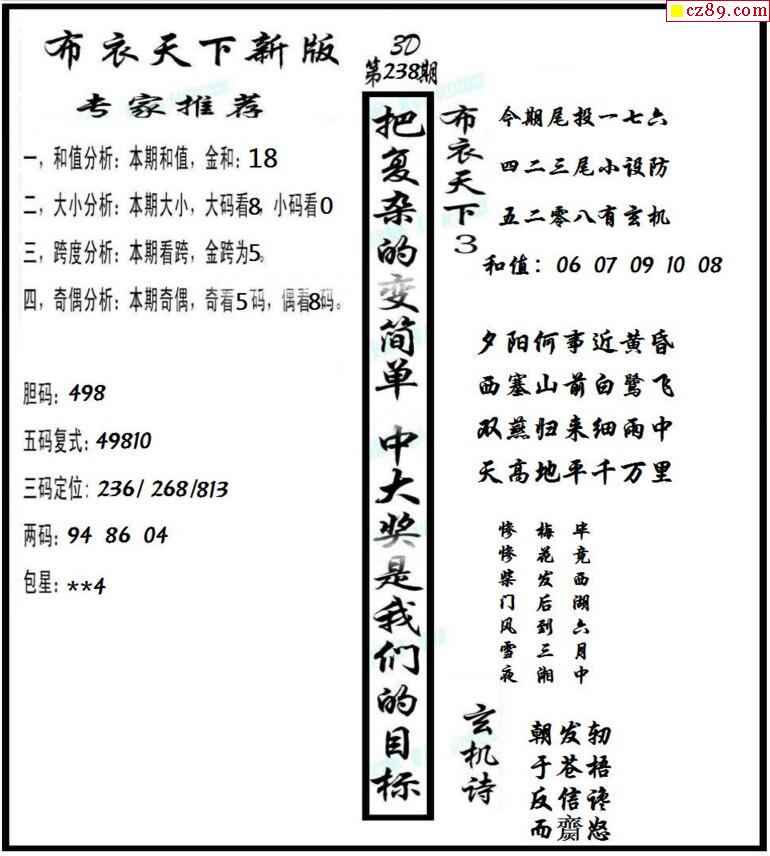 cz89.com
布衣天下新版
专家推荐
一，和值分析：本期和值，金和：18
二，大小分析：本期大小，大码看8，小码看0
三，跨度分析：本期看跨，金跨为5。
四，奇偶分析：本期奇偶，奇看5码，偶看8码。
胆码：498
五码复式：49810
三码定位：236/ 268/813
两码：94 86 04
包星：**4
3D
第238期
把复杂的变简单 中大奖是我们的目标
布衣天下3
今期尾投一七六
四二三尾小设防
五二零八有玄机
和值：06 07 09 10 08
夕阳何事近黄昏
西塞山前白鹭飞
双燕归来细雨中
天高地平千万里
毕竟西湖六月中
梅花发后到三湘
惨惨柴门风雪夜
玄机诗
朝发轫
于苍梧
反信谗
而齌怒